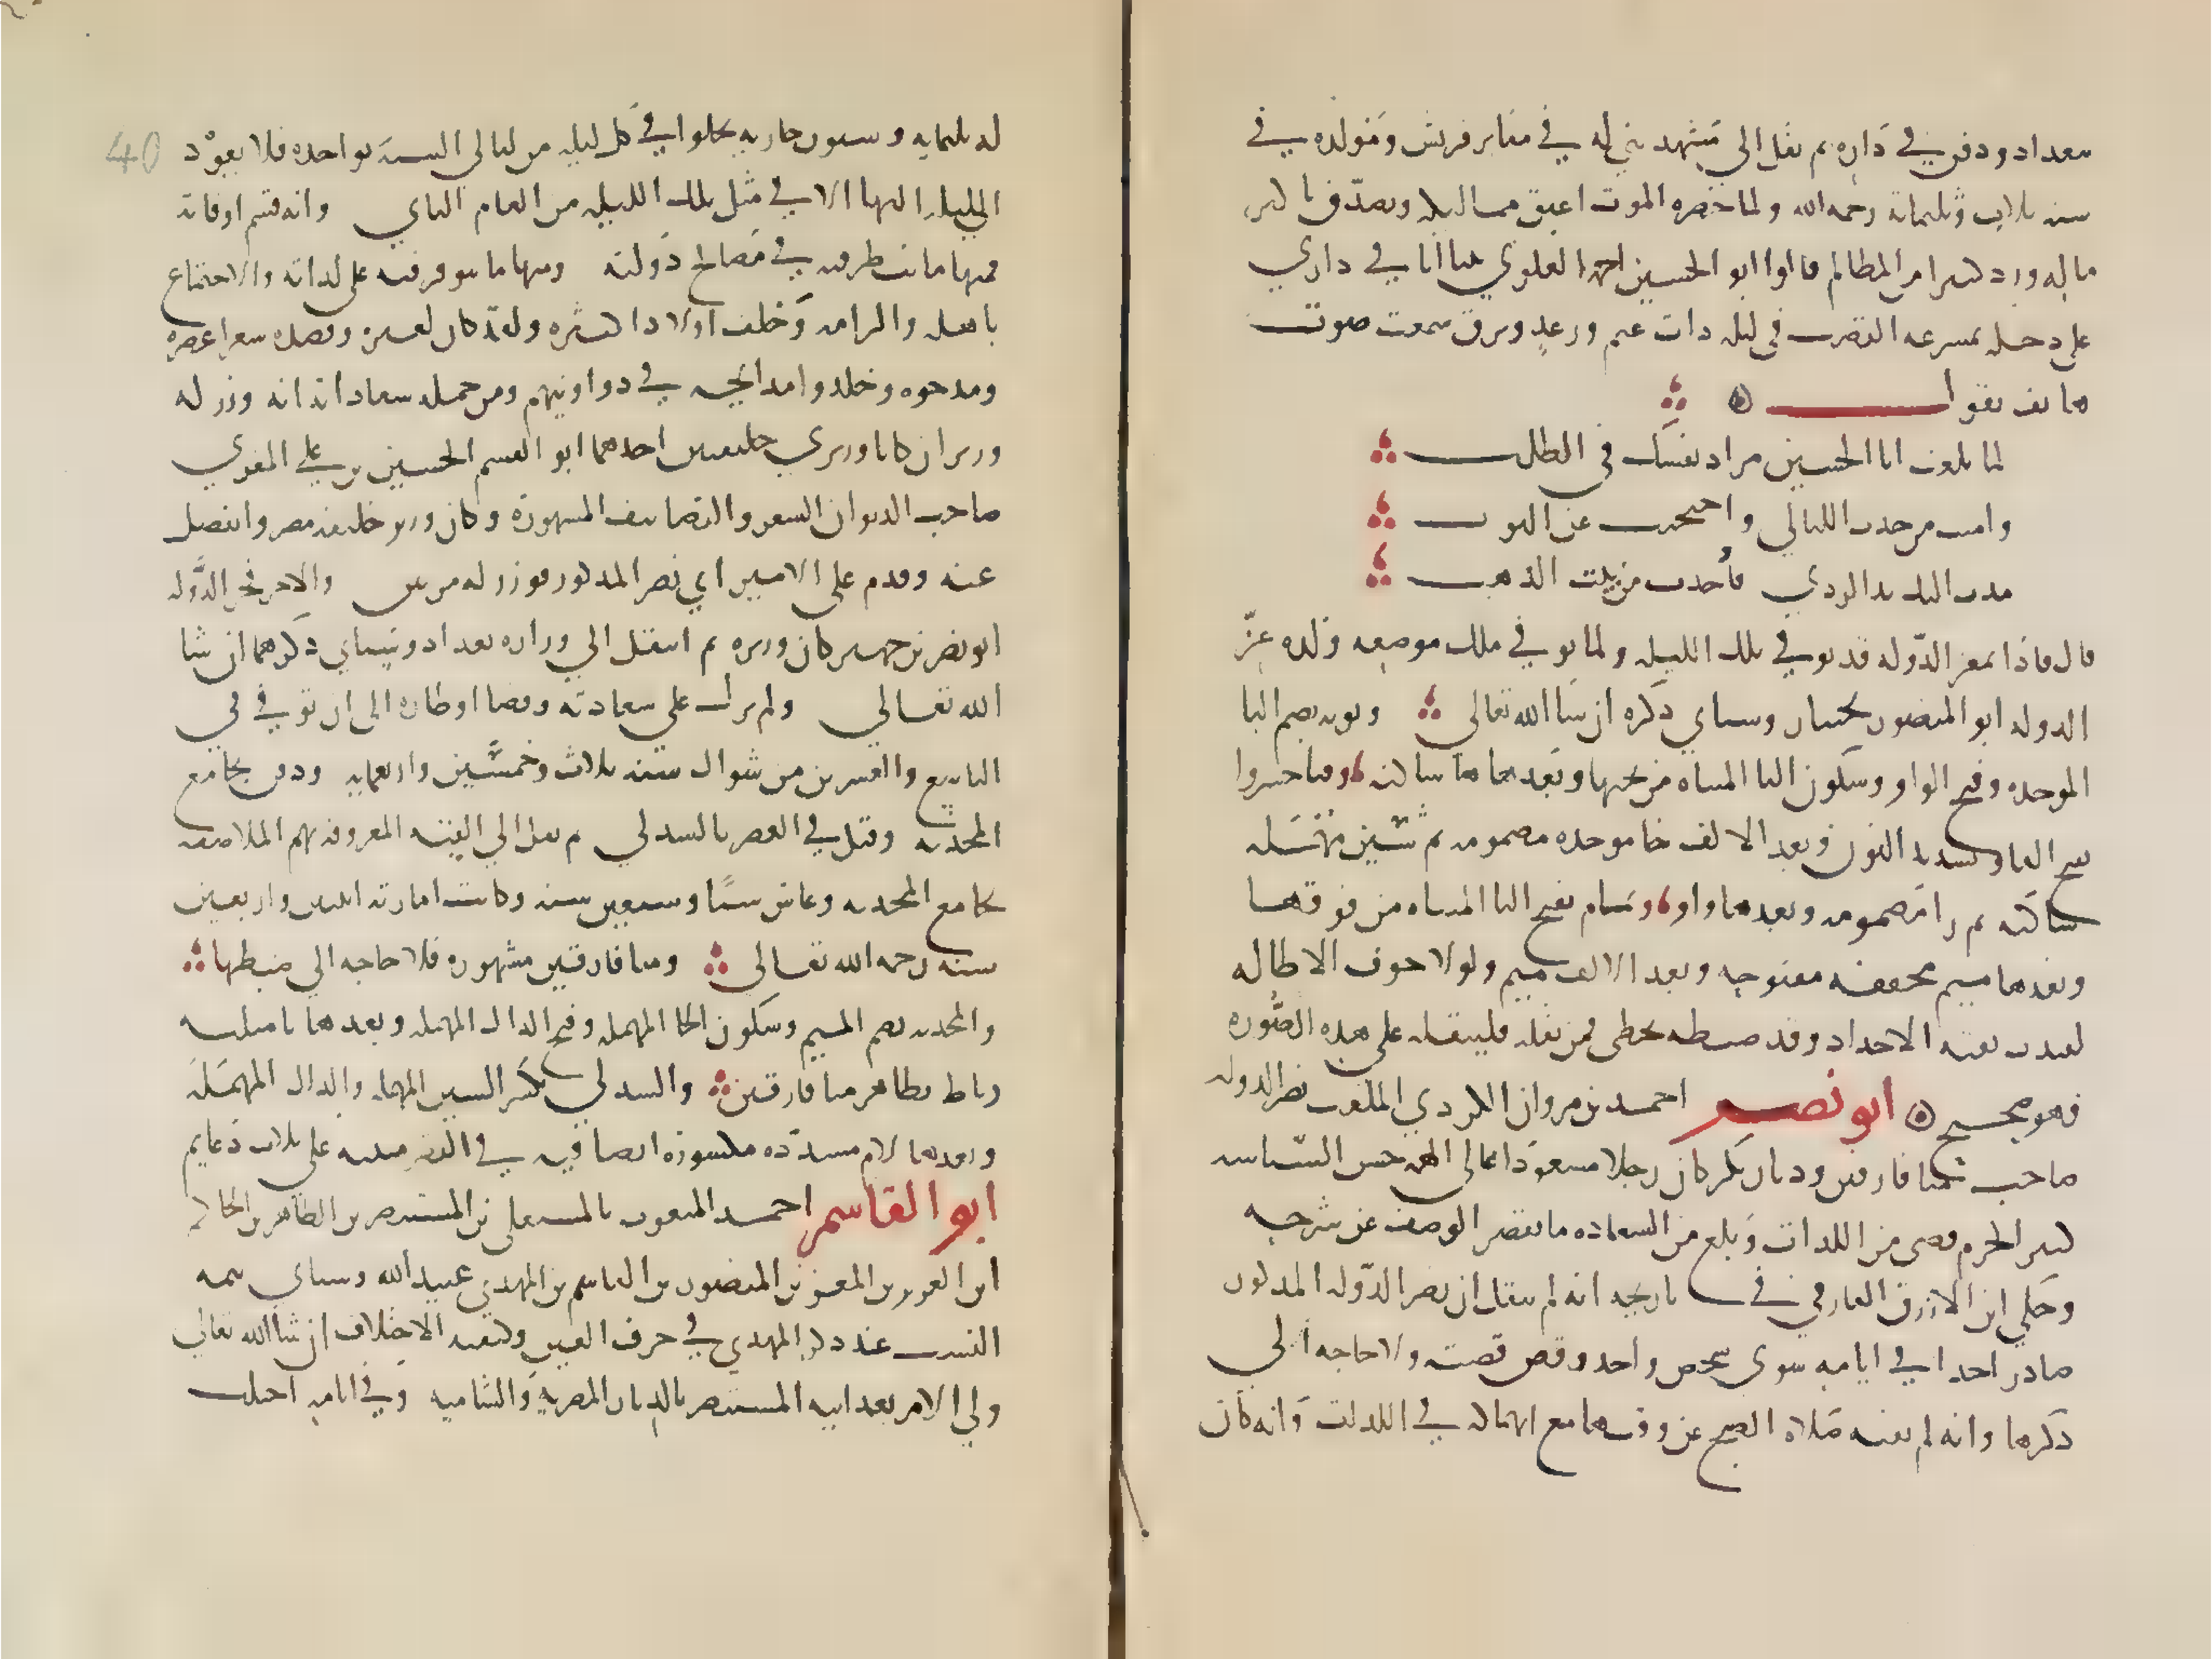 ببغداد ودفن في داره ثم نقل الى مشهد بني له في مقابر قريش ومولده في
سنة ثلاث وثلثماية رحمه الله ولما حضره الموت اعتق مماليكه وتصدق باكثر
ماله ورد كثيرا من المظالم قال ابو الحسين احمد العلوي بينا انا في داري
على دجله بمشرعة القصب في ليله ذات غيم ورعد وبرق سمعت صوت
هاتف يقول
لما بلغت ابا الحسين مراد نفسك في الطلب
وامنت من حدث الليالي واحتجبت عن النوب
مدت اليك يد الردي فأخذت من بيت الذهب
قال فاذا بمعز الدوله قد توفي في تلك الليله ولما توفي ملك موضعه ولده عز
الدوله ابو المنصور بختيار وسياتي ذكره ان شا الله تعالى وبويه بضم البا
الموحده وفتح الواو وسكون اليا المثناه من تحتها وبعدها ها ساكنه وفناخسروا
بفتح الفا وتشديد النون وبعد الالف خا موحده مضمومه ثم شين مهمله
ساكنه ثم را مضمومه وبعدها واو وتمام بفتح التا المثناه من فوقها
وبعدها ميم مخففه مفتوحه وبعد الالف ميم ولولا خوف الاطاله
لقيدت بقية الاجداد وقد ضبطه بخطي فمن نقله فلينقله على هذه الصوره
فهو صحيح ابو نصر احمد بن مروان الكردي الملقب نصر الدوله
صاحب ميافارقين وديار بكر كان رجلا مسعودا عالى الهمه حسن السياسه
كثير الحزم قضى من اللذات وبلغ من السعاده ما يقصر الوصف عن شرحه
وحكي ابن الازرق الفارقي في تاريخه انه لم ينقل ان نصر الدوله المذكور
صادر احدا في ايامه سوى شخص واحد وقص قصته ولا حاجه الي
ذكرها وانه لم تفته صلاة الصبح عن وقتها مع انهماكه في اللذات وانه كان
له ثلثمايه وستون جاريه يخلوا في كل ليله من ليالي السنة بواحده فلا تعود
الليله اليها الا في مثل تلك الليله من العام الثاني وانه قسم اوقاته
فمنها ما ينظر فيه في مصالح دولته ومنها ما يتوفر فيه على لذاته والاجتماع
باهله والزامه وخلف اولادا كثيره ولقد كان لعين وقصده شعرا عصره
ومدحوه وخلدوا مدايحه في دواوينهم ومن جمله سعاداته انه وزر له
وزيران كانا وزيري خليفتين احدهما ابو القسم الحسين بن علي المغربي
صاحب الديوان الشعر والتصانيف المشهورة وكان وزير خليفة مصر وانفصل
عنه وقدم على الامير ابي نصر المذكور فوزر له مرتين والاخر فخر الدوله
ابو نصر بن جهير كان وزيره ثم انتقل الي وزارة بغداد وسياتي ذكرهما ان شا
الله تعالي ولم يزل على سعادته وقضا اوطاره الى ان توفي في
التاسع والعشرين من شوال سنة ثلاث وخمسين واربعمايه ودفن بجامع
المحدثه وقتل في القصر بالسدلي ثم نقل الي القبه المعروفه بهم الملاصقه
بجامع المحدثه وعاش ستا وسبعين سنه وكانت امارته اثنين واربعين
سنه رحمه الله تعالى وميافارقين مشهوره فلا حاجه الي ضبطها
والمحدثه بضم الميم وسكون الحا المهمله وفتح الدال المهمله وبعدها ثا مثلثه
رباط بظاهر ميافارقين والسدلي بكسر السين المهمله والدال المهمله
وبعدها لام مشدده مكسورة ايضا قبه في القصر مبنيه على ثلاث دعايم
ابو القاسم احمد المنعوت بالمستعلي بن المستنصر بن الظاهر بن الحاكم
ابن العزيز بن المعز بن المنصور بن القاسم بن المهدي عبيد الله وسياتي تتمه
النسب عند ذكر المهدي في حرف العين وكيفيه الاختلاف ان شا الله تعالي
ولي الامر بعد ابيه المستنصر بالديار المصرية والشاميه وفي ايامه اختلت
40